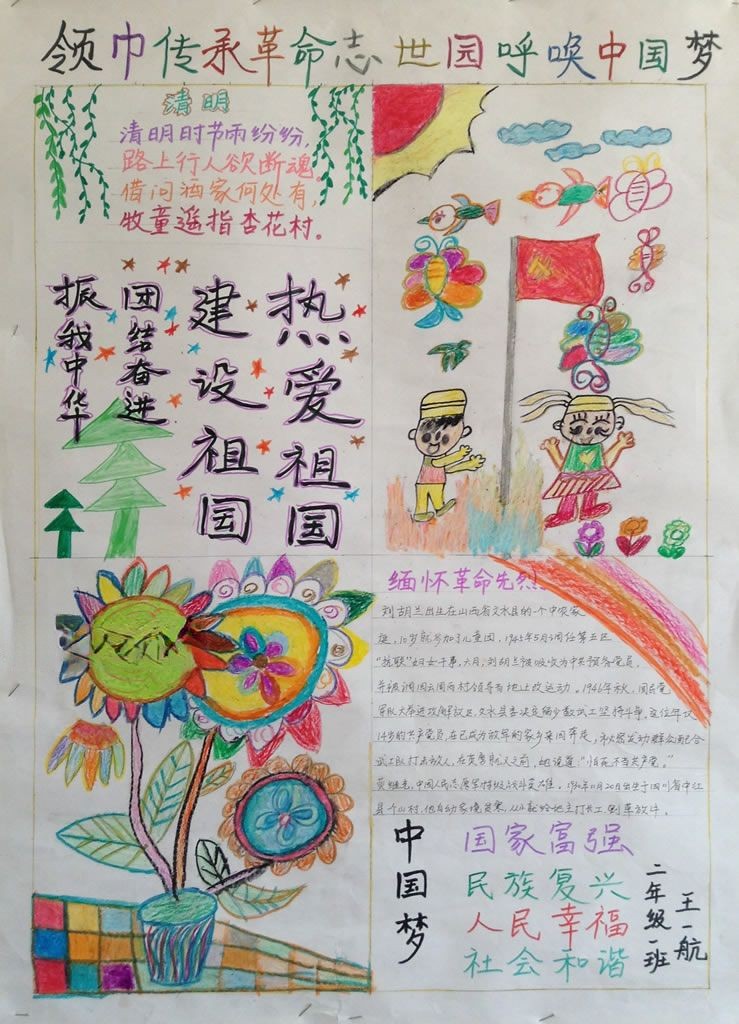 领巾传承革命志 世园呼唤中国梦
清明
清明时节雨纷纷，
路上行人欲断魂。
借问酒家何处有，
牧童遥指杏花村。
热爱祖国
建设祖国
团结奋进
振我中华
缅怀革命先烈
刘胡兰出生在山西省文水县的一个中农家
庭，10岁就参加了儿童团，1945年5月调任第五区
"抗联"妇女干事，六月，刘胡兰被吸收为中共预备党员，
并被调回云周西村领导当地土改运动。1946年秋，国民党
军队大举进攻解放区，文水县委决定留少数武工坚持斗争，这位年仅
14岁的共产党员，在已成为敌军的家乡来回奔走，
武工队打击敌人，在英勇就义之前，她说道："怕死不当共产党。"
黄继光，中国人民志愿军特级战斗英雄，出生于四川省中江
县个山村，他自幼家境贫寒，从小就给地主打长工，割草放牛。
中国梦
国家富强
民族复兴
人民幸福
社会和谐
二年级一班
王一航